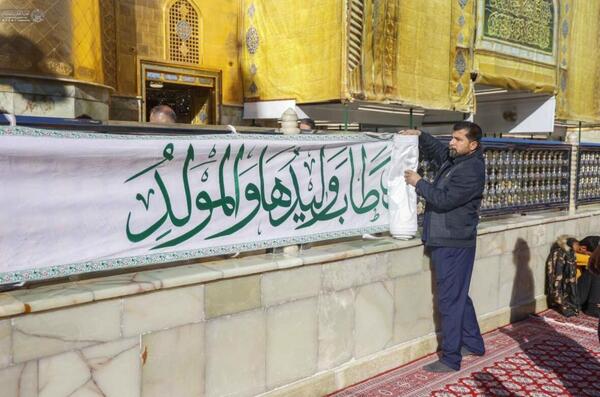 وَطَابَ وَلِيدُهَا وَالمَولِدُ